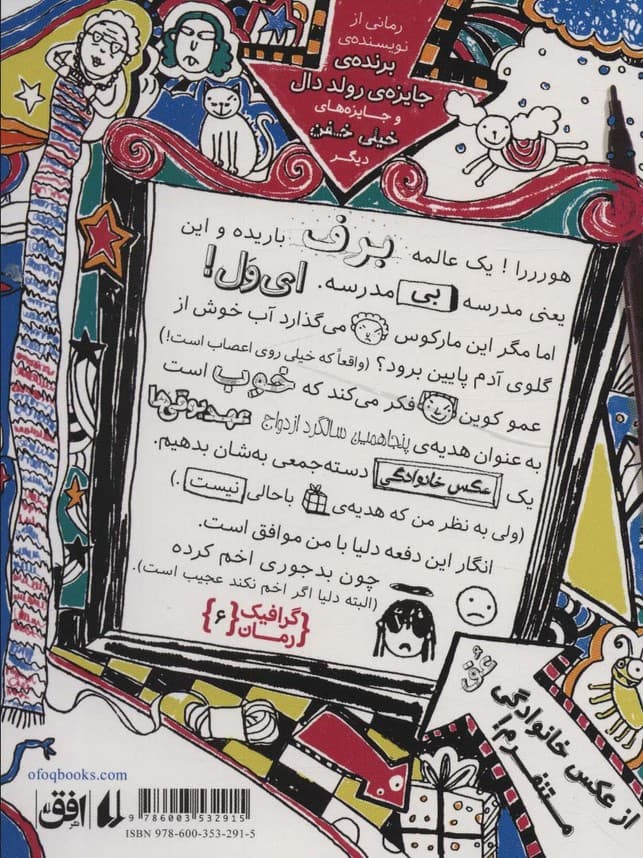 رمانی از
نویسنده‌ی
برنده‌ی
جایزه‌ی رولد دال
و جایزه‌های
خیلی خفن
دیگر
هوررررا ! یک عالمه برف باریده و این
یعنی مدرسه بی مدرسه. ای‌وَل!
اما مگر این مارکوس می‌گذارد آب خوش از
گلوی آدم پایین برود؟ (واقعاً که خیلی روی اعصاب است!)
عمو کوین فکر می‌کند که خوب است
به عنوان هدیه‌ی پنجاهمین سالگرد ازدواج عهدبوقی‌ها
یک عکس خانوادگی دسته‌جمعی به‌شان بدهیم.
(ولی به نظر من که هدیه‌ی باحالی نیست.)
انگار این دفعه دلیا با من موافق است.
چون بدجوری اخم کرده
(البته دلیا اگر اخم نکند عجیب است).
{گرافیک رمان} {۶}
از عکس خانوادگی
متنفرم!
ofoqbooks.com
افق
نشر
9 786003 532915
ISBN 978-600-353-291-5